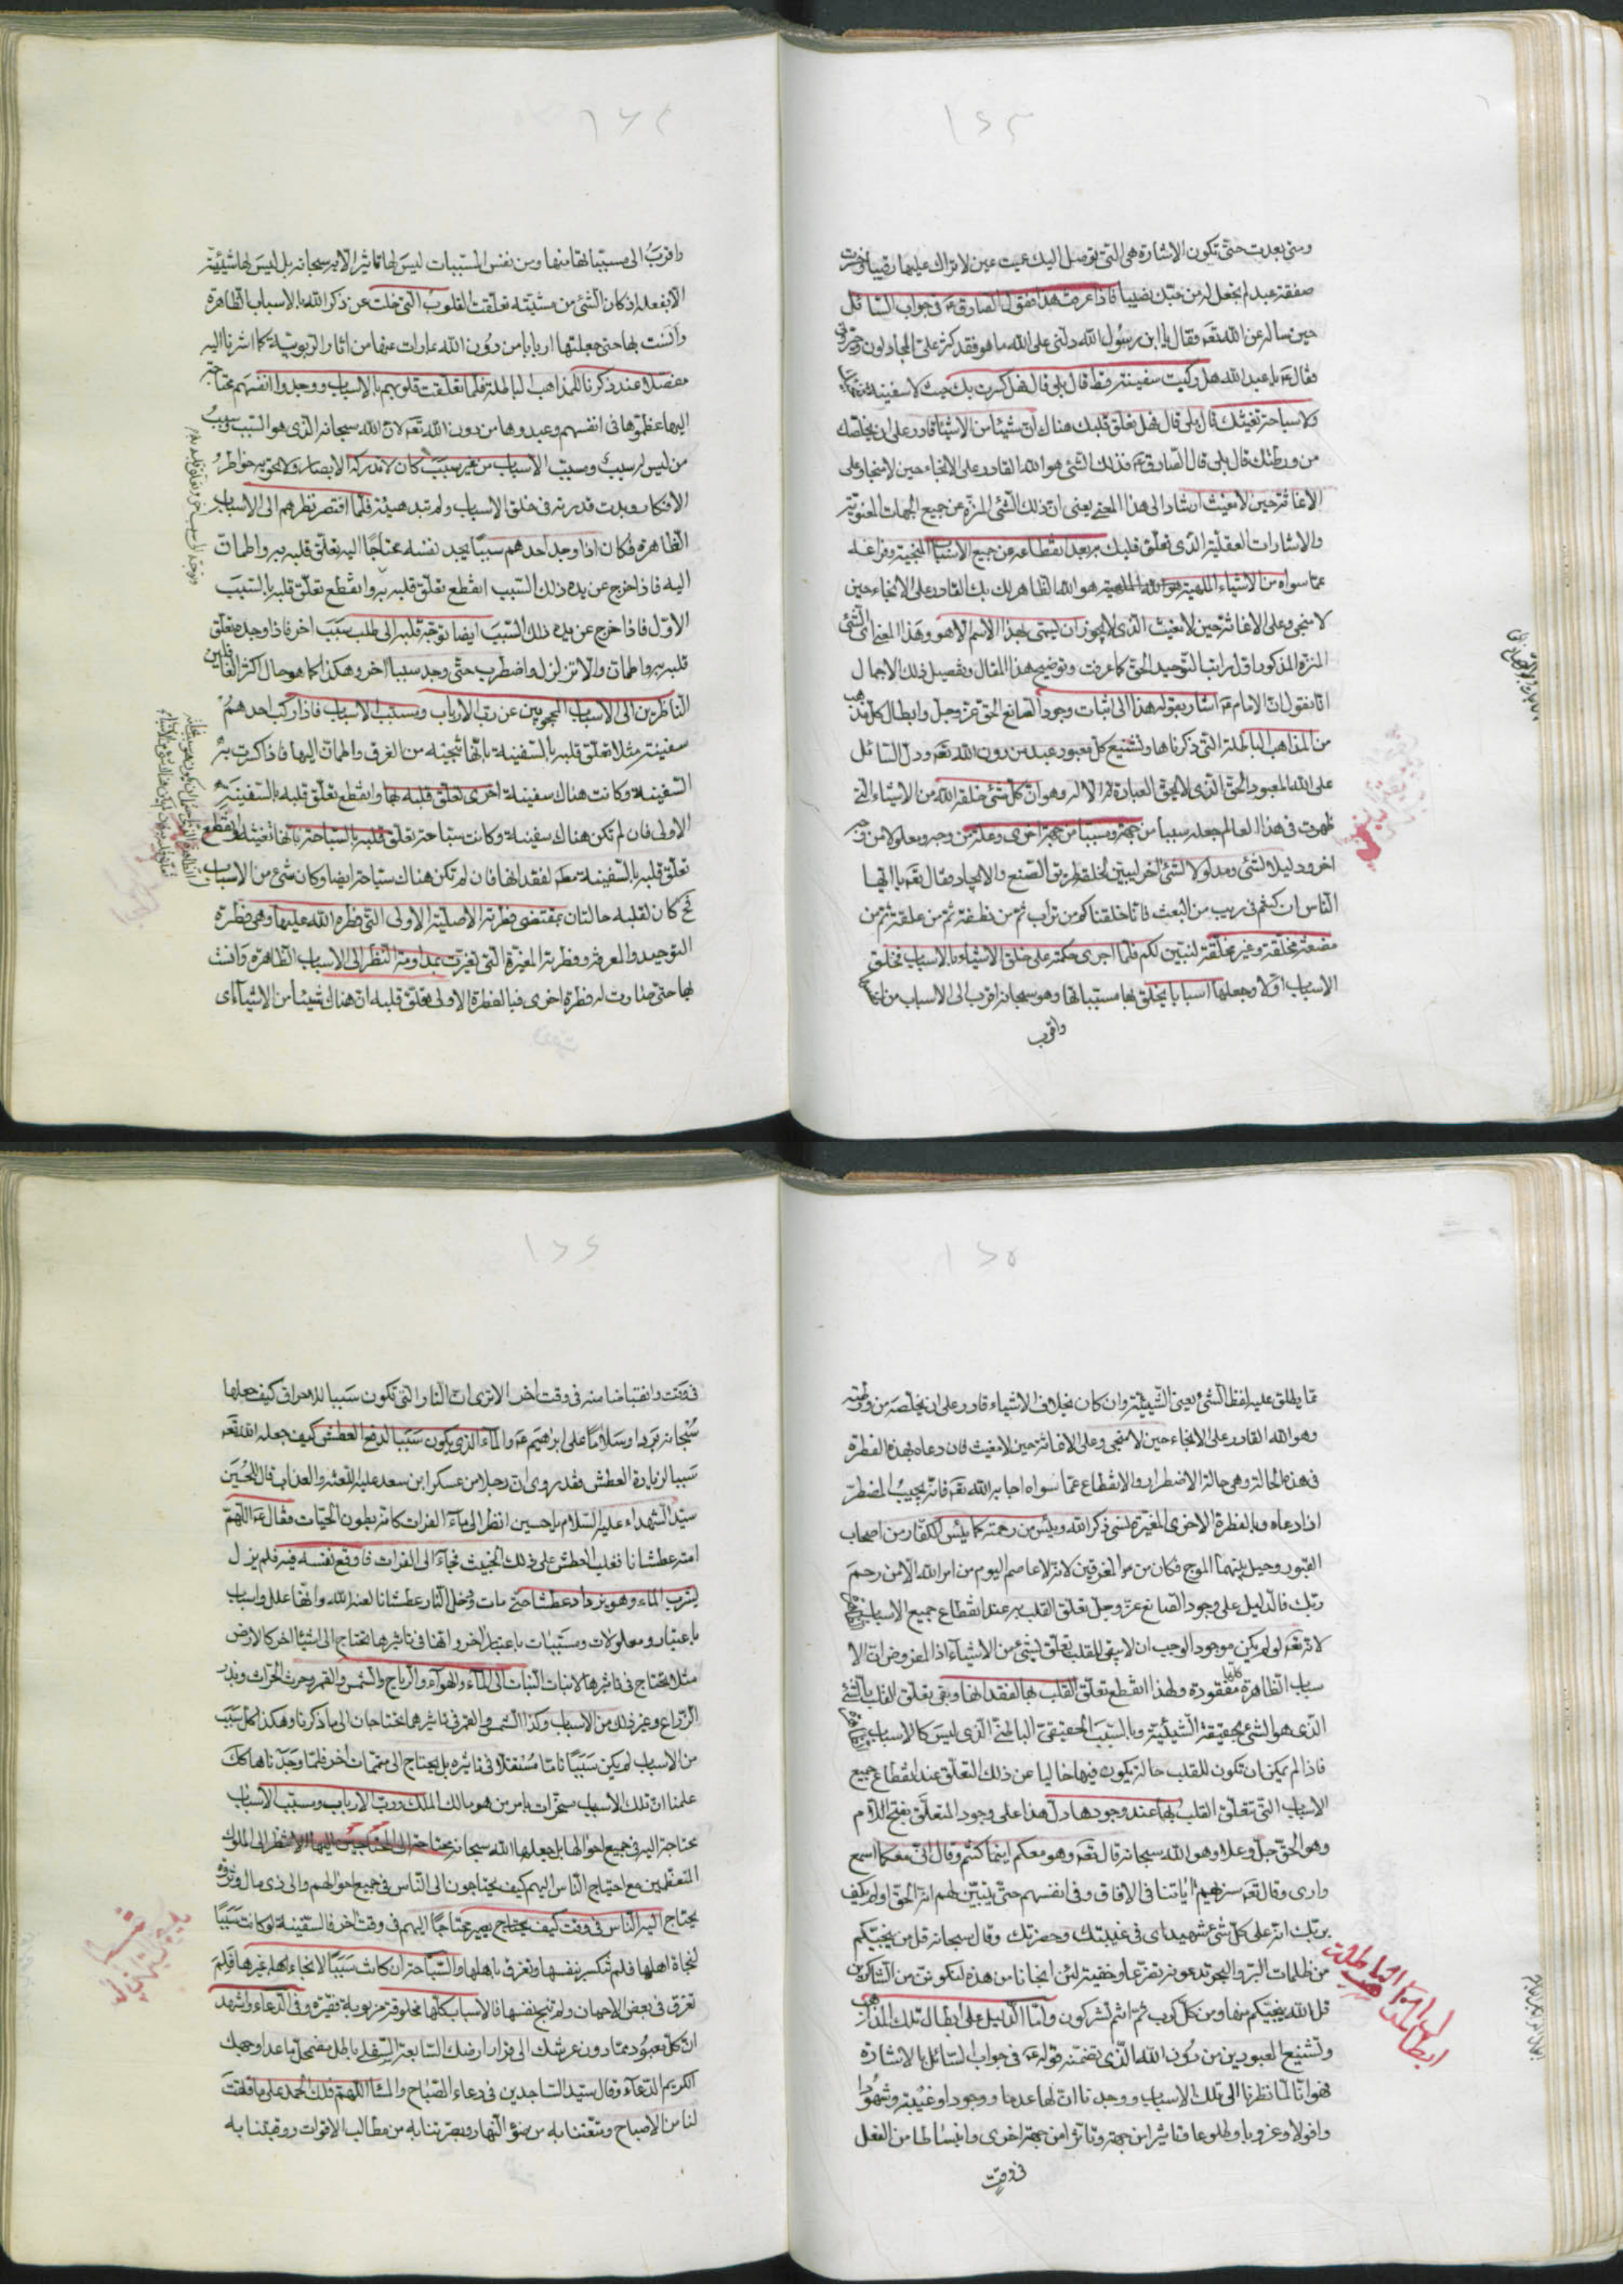 ١٤٣
ومتى بعدت حتى تكون الاشارة هى التى توصل اليك عميت عين لا تراك عليها رقيبا وخسرت
صفقة عبد لم تجعل له من حبك نصيبا فاذا عرفت هذا فقول الصادق ع فى جواب السائل
حين ساله عن الله تع فقال يا ابن رسول الله دلنى على الله ما هو فقد كثر على المجادلون وحيرونى
فقال ع يا عبد الله هل ركبت سفينة قط قال بلى قال فهل كسرت بك حيث لا سفينة تنجيك
ولا سباحة تغنيك قال بلى قال فهل تعلق قلبك هناك ان شيئا من الاشياء قادر على ان يخلصك
من ورطتك قال بلى قال الصادق ع فذلك الشئ هو الله القادر على الانجاء حين لا منجا وعلى
الاغاثة حين لا مغيث اشار الى هذا المعنى يعنى ان ذلك الشئ المنزه عن جميع الجهات المعنوية
والاشارات العقلية الذى تعلق قلبك به بعد انقطاعه عن جميع الاسباب المنجية وفراغه
عما سواه من الاشياء الملهية هو الله الظاهر لك بك القادر على الانجاء حين
لا منجى وعلى الاغاثة حين لا مغيث الذى لا يجوز ان يسمى بهذا الاسم الا هو وهذا المعنى اى الشئ
المنزه المذكور اقل مراتب التوحيد الحق كما عرفت وتوضيح هذا المقال وتفصيل ذلك الاجمال
انا نقول ان الامام ع اشار بقوله هذا الى اثبات وجود الصانع الحق عز وجل وابطال كل مذهب
من المذاهب الباطلة التى ذكرناها وتشنيع كل معبود عبد من دون الله تع ودل السائل
على الله المعبود الحق الذى لا يحق العبادة الا له وهو ان كل شئ خلقه الله من الاشياء التى
ظهرت فى هذا العالم جعله سببا من جهة ومسببا من جهة اخرى وعلة من وجه ومعلولا من وجه
اخر ودليلا لشئ ومدلولا لشئ اخر ليبين لخلقه طريق الصنع والايجاد فقال تع يا ايها
الناس ان كنتم فى ريب من البعث فانا خلقناكم من تراب ثم من نطفة ثم من علقة ثم من
مضغة مخلقة وغير مخلقة لنبين لكم فلما اجرى حكمته على خلق الاشياء بالاسباب فخلق
الاسباب اولا وجعلها اسبابا يخلق بها مسبباتها وهو سبحانه اقرب الى الاسباب من
واقرب
١٤٤
واقرب الى مسبباتها منها ومن نفس المسببات ليس لها تاثير الا به سبحانه بل ليس لها شيئية
الا بفعله اذ كان الشئ من مشيته تعلقت القلوب التى غفلت عن ذكر الله بالاسباب الظاهرة
وانست بها حتى جعلتها اربابا من دون الله عارات عنها من اثار الربوبية كما اشرنا اليه
مفصلا عند ذكرنا للمذاهب الباطلة فلما تعلقت قلوبهم بالاسباب ووجدوا انفسهم محتاجة
اليها عظموها فى انفسهم وعبدوها من دون الله تع لان الله سبحانه الذى هو السبب وسبب
من ليس له سبب ومسبب الاسباب من غير سبب كان لا تدركه الابصار ولا تحويه خواطر
الافكار وبدت قدرته فى خلق الاسباب ولم تبد هيئة فلما اقتصر نظرهم الى الاسباب
الظاهرة فكان اذا وجد احدهم سببا يجد نفسه محتاجا اليه تعلق قلبه به واطمان
اليه فاذا خرج عن يده ذلك السبب انقطع تعلق قلبه به وانقطع تعلق قلبه بالسبب
الاول فاذا خرج عن يده ذلك السبب ايضا توجه قلبه الى طلب سبب اخر فاذا وجده تعلق
قلبه به واطمان والا تزلزل واضطرب حتى وجد سببا اخر وهكذا كما هو حال اكثر الغافلين
الناظرين الى الاسباب المحجوبين عن رب الارباب ومسبب الاسباب فاذا ركب احدهم
سفينة مثلا تعلق قلبه بالسفينة بانها تنجيه من الغرق واطمان اليها فاذا كسرت به
السفينة وكانت هناك سفينة اخرى تعلق قلبه بها وانقطع تعلق قلبه بالسفينة
الاولى فان لم تكن هناك سفينة وكانت سباحة تعلق قلبه بالسباحة بانها تغنيه وانقطع
تعلق قلبه بالسفينة معه لفقدانها فان لم تكن هناك سباحة ايضا وكان شئ من الاسباب
فح كان لقلبه حالتان بمقتضى فطرته الاصلية الاولى التى فطره الله عليها وهى فطرة
التوحيد والمعرفة وفطرته المغيرة التى تغيرت بمداومة النظر الى الاسباب الظاهرة وانست
بها حتى صارت له فطرة اخرى فبالفطرة الاولى تعلق قلبه ان هناك شيئا من الاشياء اى
١٤٥
مما يطلق عليه لفظ الشئ يعنى الشيئية وان كان بخلاف الاشياء قادر على ان يخلصه من ورطته
وهو الله القادر على الانجاء حين لا منجى وعلى الاغاثة حين لا مغيث فان دعاه بهذه الفطرة
فى هذه الحالة وهى حالة الاضطرار والانقطاع عما سواه اجابه الله تع فانه يجيب المضطر
اذا دعاه وبالفطرة الاخرى المغيرة ينسى ذكر الله ويئس من رحمته كما يئس الكفار من اصحاب
القبور وحيل بينهما الموج فكان من المغرقين لانه لا عاصم اليوم من امر الله الا من رحم
ربك فالدليل على وجود الصانع عز وجل تعلق القلب به عند انقطاع جميع الاسباب
لانه تع لو لم يكن موجودا لوجب ان لا يبقى للقلب تعلق بشئ من الاشياء اذ المفروض ان الا
سباب الظاهرة كلها مفقودة ولهذا انقطع تعلق القلب بها لفقدانها وبقى تعلق القلب بالشئ
الذى هو الشئ بحقيقة الشيئية وبالسبب الحقيقى الباطنى الذى ليس كالاسباب
فاذا لم يمكن ان تكون للقلب حالة يكون فيها خاليا عن ذلك التعلق عند انقطاع جميع
الاسباب التى تتعلق القلب بها عند وجودها دل هذا على وجود المتعلق بفتح اللام
وهو الحق جل وعلا وهو الله سبحانه قال تع وهو معكم اينما كنتم وقال اننى معكما اسمع
وارى وقال تع سنريهم اياتنا فى الافاق وفى انفسهم حتى يتبين لهم انه الحق اولم يكف
بربك انه على كل شئ شهيد اى فى غيبتك وحضرتك وقال سبحانه قل من ينجيكم
من ظلمات البر والبحر تدعونه تضرعا وخفية لئن انجانا من هذه لنكونن من الشاكرين
قل الله ينجيكم منها ومن كل كرب ثم انتم تشركون واما الدليل على ابطال تلك المذاهب
وتشنيع المعبودين من دون الله الذى تضمنه قوله ع فى جواب السائل بالاشارة
فهو انا لما نظرنا الى تلك الاسباب ووجدنا ان لها عدما ووجودا وغيبة وشهودا
وافولا وغروبا وطلوعا وتاثيرا من جهة وتاثرا من جهة اخرى وانبساطا من الفعل
فى وقت
ابطال المذاهب الباطلة
١٤٦
فى وقت وانقباضا منه فى وقت اخر الا ترى ان النار التى تكون سببا للاحراق كيف جعلها
سبحانه بردا وسلاما على ابراهيم ع والماء الذى يكون سببا لدفع العطش كيف جعله الله تع
سببا لزيادة العطش فقد روى ان رجلا من عسكر ابن سعد عليه اللعنة والعذاب قال للحسين
سيد الشهداء عليه السلام يا حسين انظر الى ماء الفرات كانه بطون الحيات فقال ع اللهم
امته عطشانا فغلب العطش على ذلك الخبيث فجاء الى الفرات فاوقع نفسه فيه فلم يزل
يشرب الماء وهو يزداد عطشا حتى مات ودخل النار عطشانا لعنه الله وانها علل واسباب
باعتبار ومعلولات ومسببات باعتبار اخر وانها فى تاثيرها تحتاج الى اشياء اخر كالارض
مثلا تحتاج فى تاثيرها لانبات النبات الى الماء والهواء والرياح والشمس والقمر وحرث الحراث وبذر
الزراع وغير ذلك من الاسباب وكذا الشمس والقمر فى تاثيرهما تحتاجان الى ما ذكرنا وهكذا كل سبب
من الاسباب لم يكن سببا تاما مستقلا فى تاثيره بل يحتاج الى متممات اخر فلما وجدناها كك
علمنا ان تلك الاسباب مسخرات بامر من هو مالك الملك ورب الارباب ومسبب الاسباب
محتاجة اليه فى جميع احوالها بل جعلها الله سبحانه محتاجة الى المحتاجين اليها الا تنظر الى الملوك
المتعظمين مع احتياج الناس اليهم كيف يحتاجون الى الناس فى جميع احوالهم والى ذى مال وثروة
يحتاج اليه الناس فى وقت كيف يحتاج يصير محتاجا اليهم فى وقت اخر فالسفينة لو كانت سببا
لنجاة اهلها فلم تنكسر بنفسها وتغرق باهلها والسباحة ان كانت سببا لانجاء اهله غيرها فلم
تغرق فى بعض الاحيان ولم تنج بنفسها فالاسباب كلها مخلوقة مربوبة فقيرة وفى الدعاء واشهد
ان كل معبود مما دون عرشك الى قرار ارضك السابعة السفلى باطل مضمحل ما عدا وجهك
الكريم الدعاء وقال سيد الساجدين فى دعاء الصباح والمساء اللهم فلك الحمد على ما فلقت
لنا من الاصباح ومتعتنا به من ضوء النهار وبصرتنا به من مطالب الاقوات ووقيتنا به